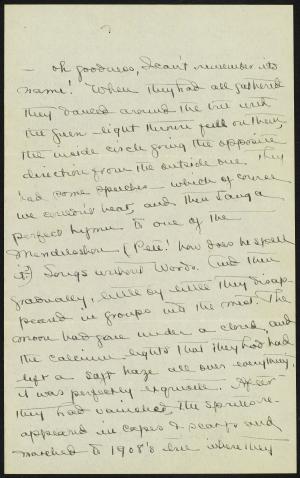 ?
— oh goodness, I can't remember its
name! When they had all gathered
they danced around the tree with
the green light thrown full on them,
the inside circle going the opposite
direction from the outside one. They
had some speeches which of course
we couldn't hear, and then sang a
perfect hymn to one of the
Mendelssohn (Pete! how does he spell
it?) Songs without Words. And then
gradually, little by little they disap-
peared in groups into the mist. The
moon had gone under a cloud, and
the calcium lights that they had had
left a soft haze all over everything.
It was perfectly exquisite. After
they had vanished, the sophomores
appeared in capes & scarfs and
marched to 1908's tree where they